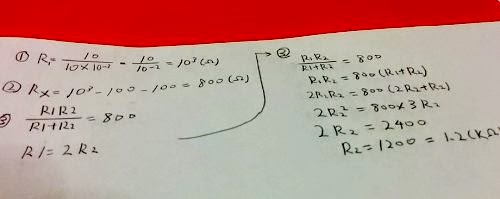 ① R₁ = 10 / 10×10⁻³ = 10 / 10⁻² = 10³ (Ω)
② Rx = 10³ - 100 - 100 = 800 (Ω)
③ R1R2 / R1+R2 = 800
R1 = 2R2
③ R1R2 / R1+R2 = 800
R1R2 = 800 (R1+R2)
2R1R2 = 800 (2R2+R2)
2R2² = 800×3R2
2R2 = 2400
R2 = 1200 = 1.2 (KΩ